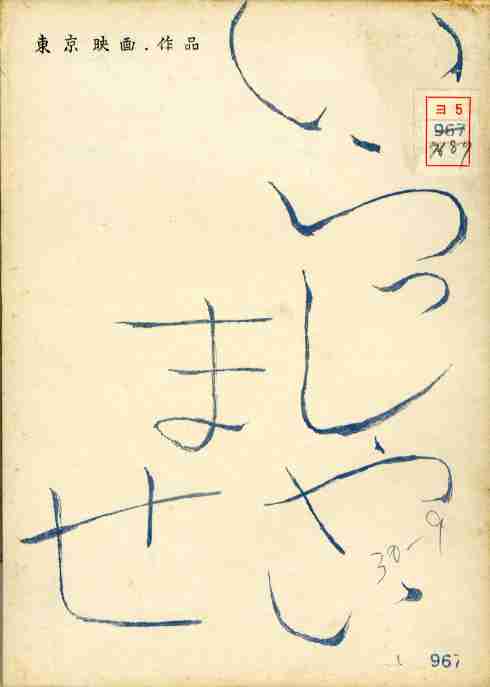 東京映画.作品
いらっしやい
ませ
ヨ5
967
30-9
967